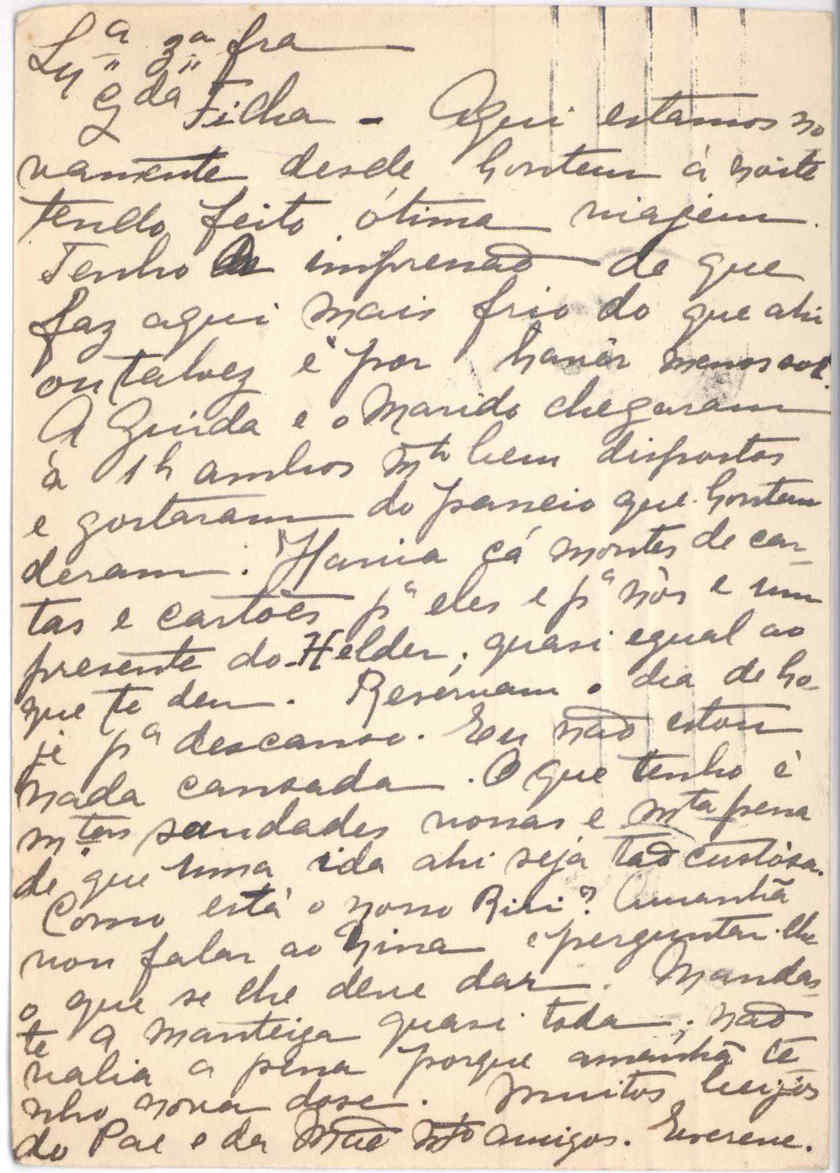 Lxª 3ª fra
Qdª Filha - Aqui estamos no
vamente desde hontem à noite
tendo feito ótima viajem.
Tenho a impressão de que
faz aqui mais frio do que ahi
ou talvez é por havêr menos sol.
A Guida e o Marido chegaram
à 1h ambos mto bem dispostos
e gostaram do passeio que hontem
deram. Havia cá montes de car-
tas e cartões pª eles e pª nós e um
presente do Helder, quasi egual ao
que te deu. Reservam o dia de ho-
je pª descanso. Eu não estou
nada cansada. O que tenho é
mtas saudades vossas e mta pena
de que uma ida ahi seja tão custósa.
Como está o nosso Riri? Amanhã
vou falar ao Gina e perguntar-lhe
o que se lhe deve dar. Mandas-
te a manteiga quasi toda; não
valia a pena porque amanhã te
nho nova dose. Muitos beijos
do Pae e da Mãe mto amigos. Escreve.